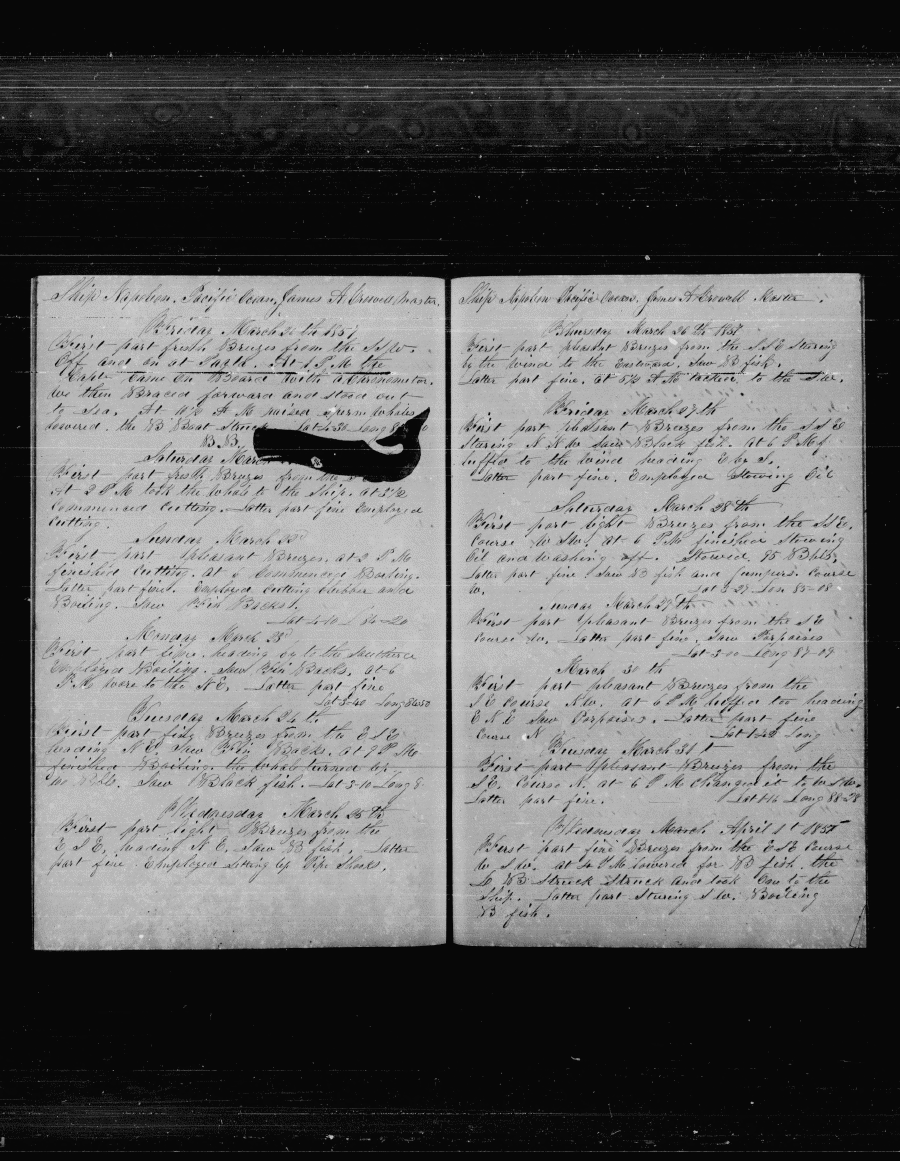 Ship Napoleon. Pacific Ocean, James A. Crowell Master.
Friday March 20th 1857
First part fresh Breezes from the S.S.W.
Off and on at Payta. At 1 P M the
Captn Came On Board with a Chronometer.
We then Braced forward and stood out
to Sea. At 10½ A M raised Sperm Whales
lowered. the B Boat Struck Lat 4-30 Long
B. B.
Saturday March
First part fresh Breezes from the S
At 2 P M took the Whale to the Ship. at 3½
Commenced Cutting. Latter part fine Employed
Cutting.
Sunday March 22d
First part pleasant Breezes, at 2 P M
finished Cutting. at 6 Commenced Boiling.
Latter part fine. Employed Cutting blubber and
Boiling. Saw Fin Backs.
Lat 4-10 L 84-20
Monday March 23d
First part fine. heading up to the Southard
Employed Boiling. Saw Fin Backs. at 6
P. M. wore to the N E. Latter part fine
Lat 3-40 Long 84-50
Tuesday March 24th
First part fine Breezes from the E S E
heading N E. Saw Fin Backs. At 9 P. M.
finished Boiling. the Whale turned up
Bbls. Saw Black fish. Lat 3-10 Long 8
Wednesday March 25th
First part light Breezes from the
E S E. heading N E. Saw B fish. Latter
part fine Employed Setting up Pipe Shooks.
Ship Napoleon Pacific Ocean, James A Crowell Master.
Thursday March 26th 1857
First part pleasant Breezes from the S S E Stearing
by the Wind to the Eastward. Saw B fish.
Latter part fine. at 5½ A M tacked to the S. W.
Friday March 27th
First part pleasant Breezes from the S S E
Stearing N N W Saw Black fish. at 6 P M
luffed to the Wind heading E by S.
Latter part fine. Employed Stowing Oil
Saturday March 28th
First part light Breezes from the S. S E.
Course W. S W. at 6 P M finished Stowing
Oil and Washing off. Stowed 95 Bbls.
Latter part fine. Saw B fish and Jumpers. Course
W. Lat 3-27 Lon 85-08
Sunday March 29th
First part pleasant Breezes from the S E
Course W. Latter part fine. Saw Porpoises
Lat 3-00 Long 87-09
March 30th
First part pleasant Breezes from the
S E Course N. W. at 6 P M luffed too heading
E N E Saw Porpoises. Latter part fine
Course N Lat 1-42 Long
Tuesday March 31st
First part pleasant Breezes from the
S E. Course N. at 6 P M changed it to W. S W.
Latter part fine. Lat 1-16 Long 88-28
Wednesday March April 1st 1857
First part fine Breezes from the E S E Course
W. S. W. at 4 P M lowered for B fish. the
L B Struck Struck and took One to the
Ship. Latter part Stearing S W. Boiling
B fish.